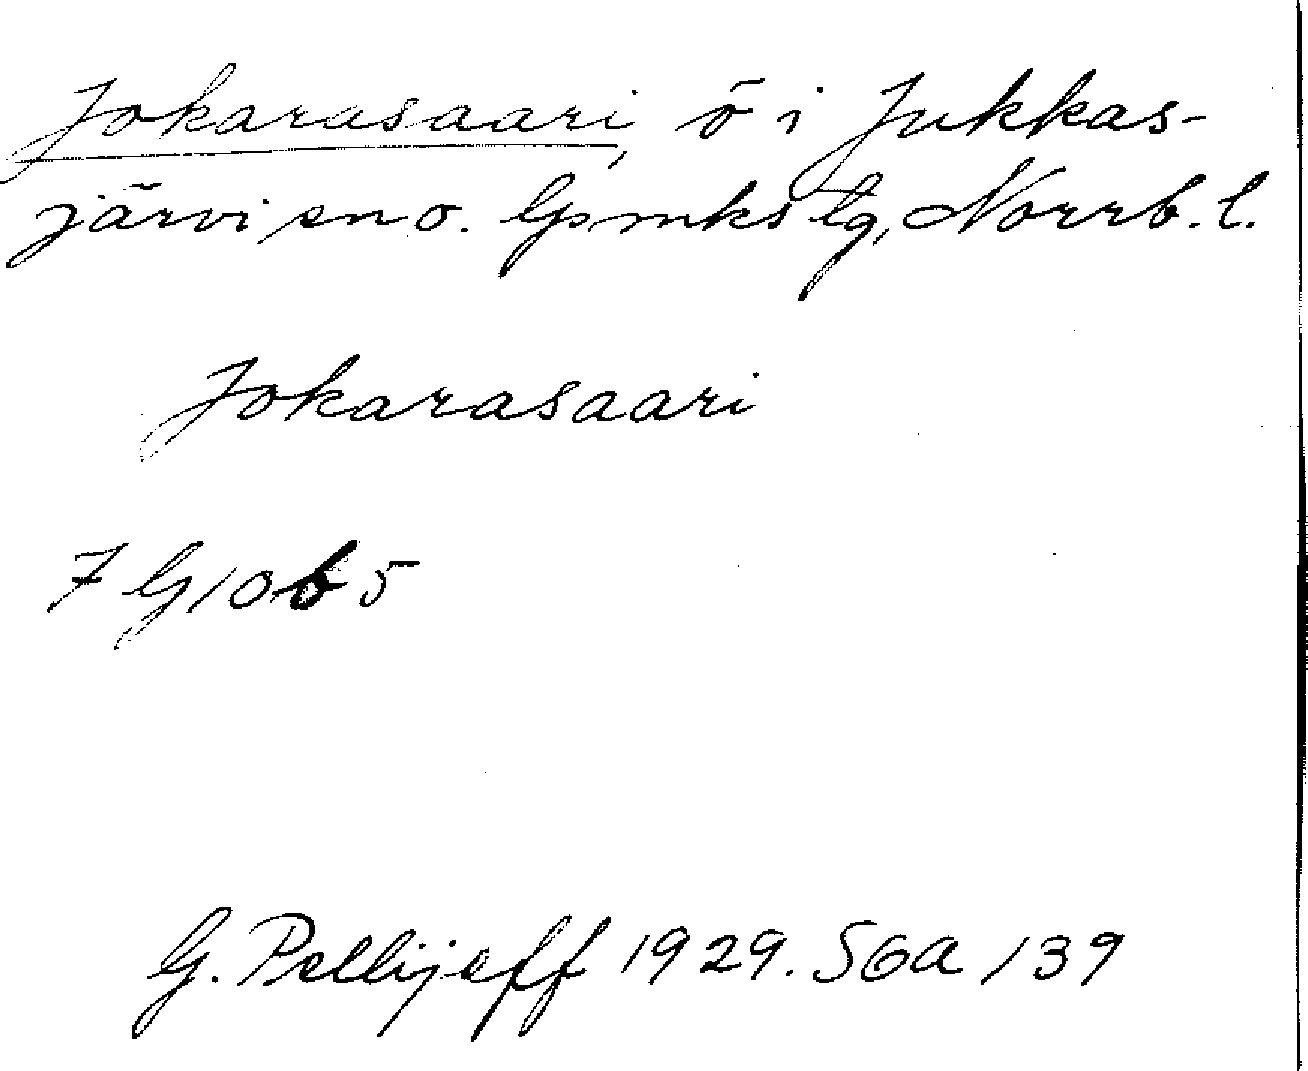 Jokarasaari, ö i Jukkas-
järvi sn o. Gs mks tg, Norrb. l.
Jokarasaari
7 G 10 b 5
G. Pellijeff 1929. SGA 139